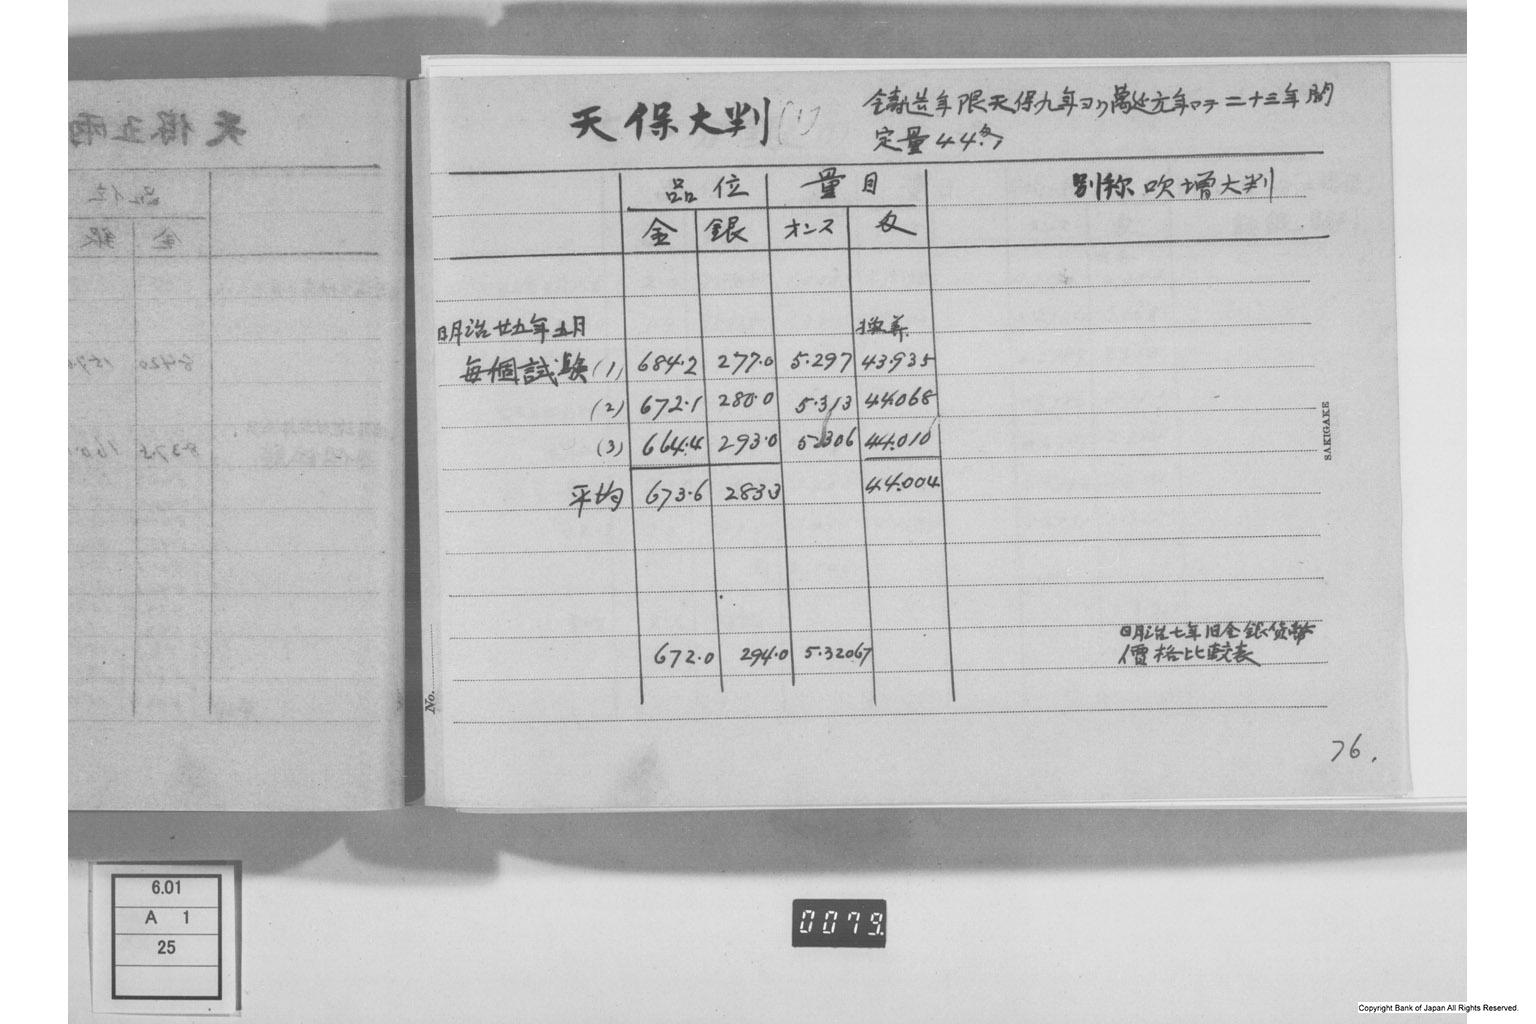 天保大判 (1)
鋳造年限天保九年ヨリ萬延元年マデ二十三年間
定量44匁
品位 量目 別称吹増大判
金 銀 オンス 匁
明治廿五年五月 換算
毎個試験 (1) 684.2 277.0 5.297 43.935
(2) 672.1 280.0 5.313 44.068
(3) 664.4 293.0 5.306 44.010
平均 673.6 283.3 44.004
672.0 294.0 5.32067 明治七年旧金銀貨幣
價格比較表
76.
No.
SAKIGAKE
6.01
A 1
25
0079.
Copyright Bank of Japan All Rights Reserved.